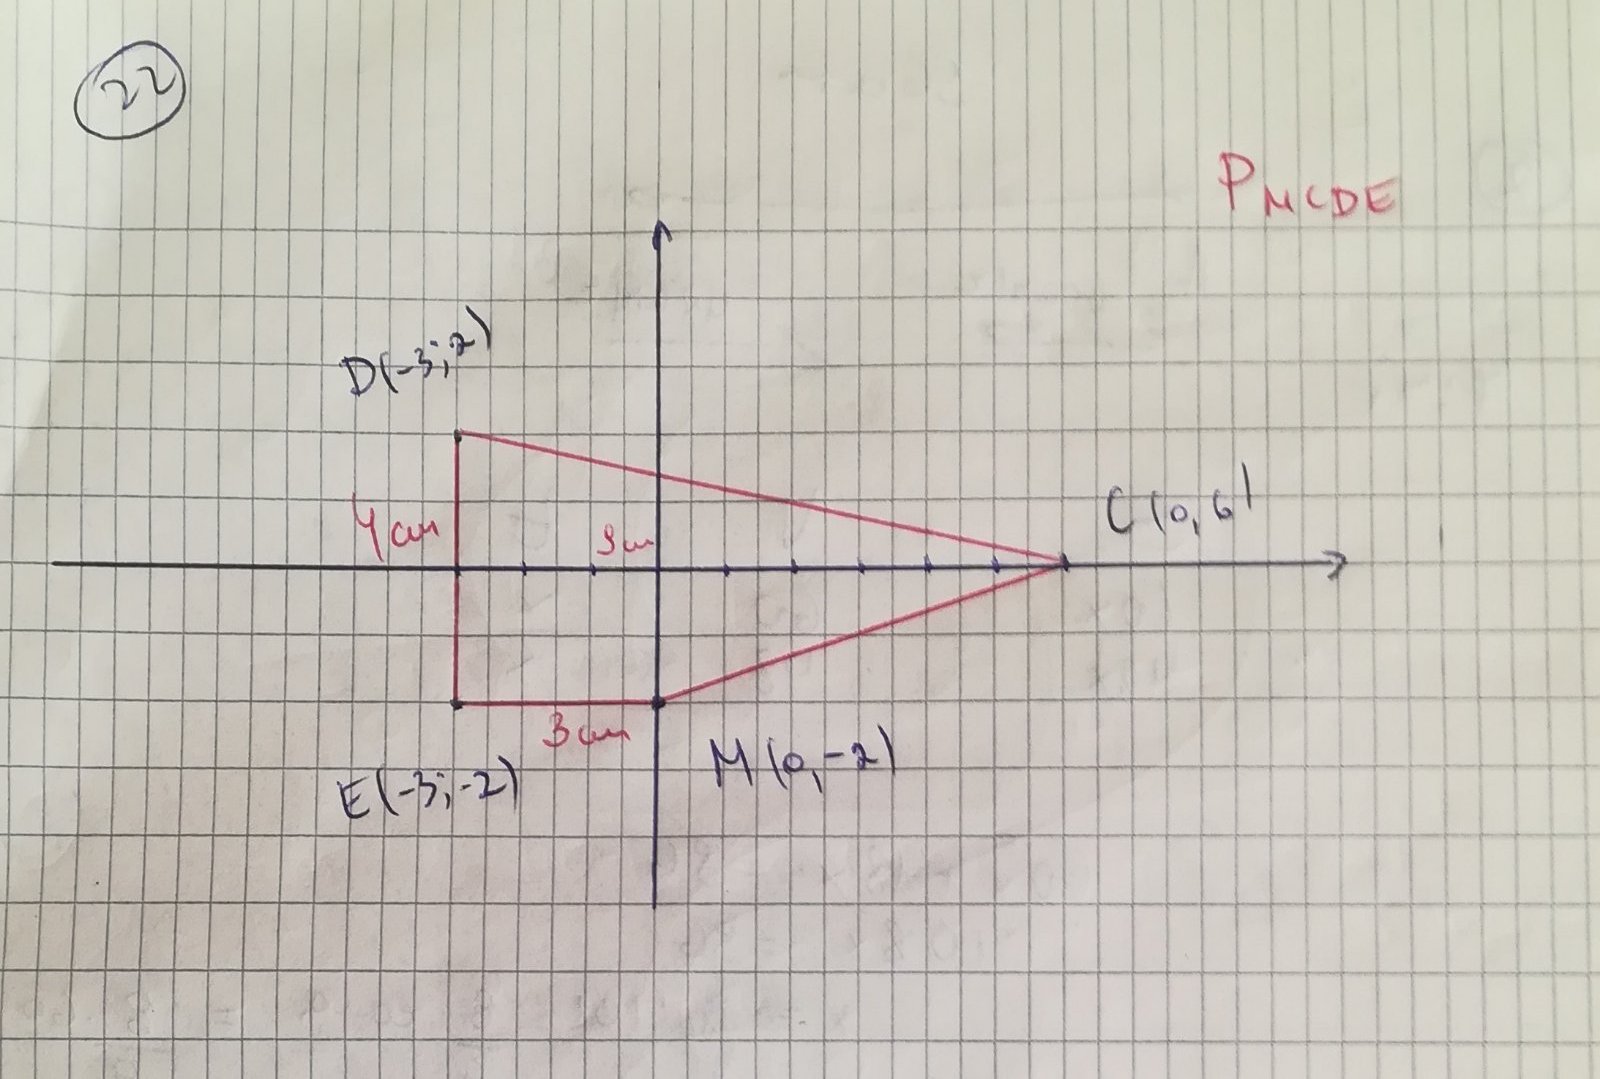 22
PMCDE
D(-3;2)
C(0,6)
4cm
3cm
3cm
M(0,-2)
E(-3;-2)